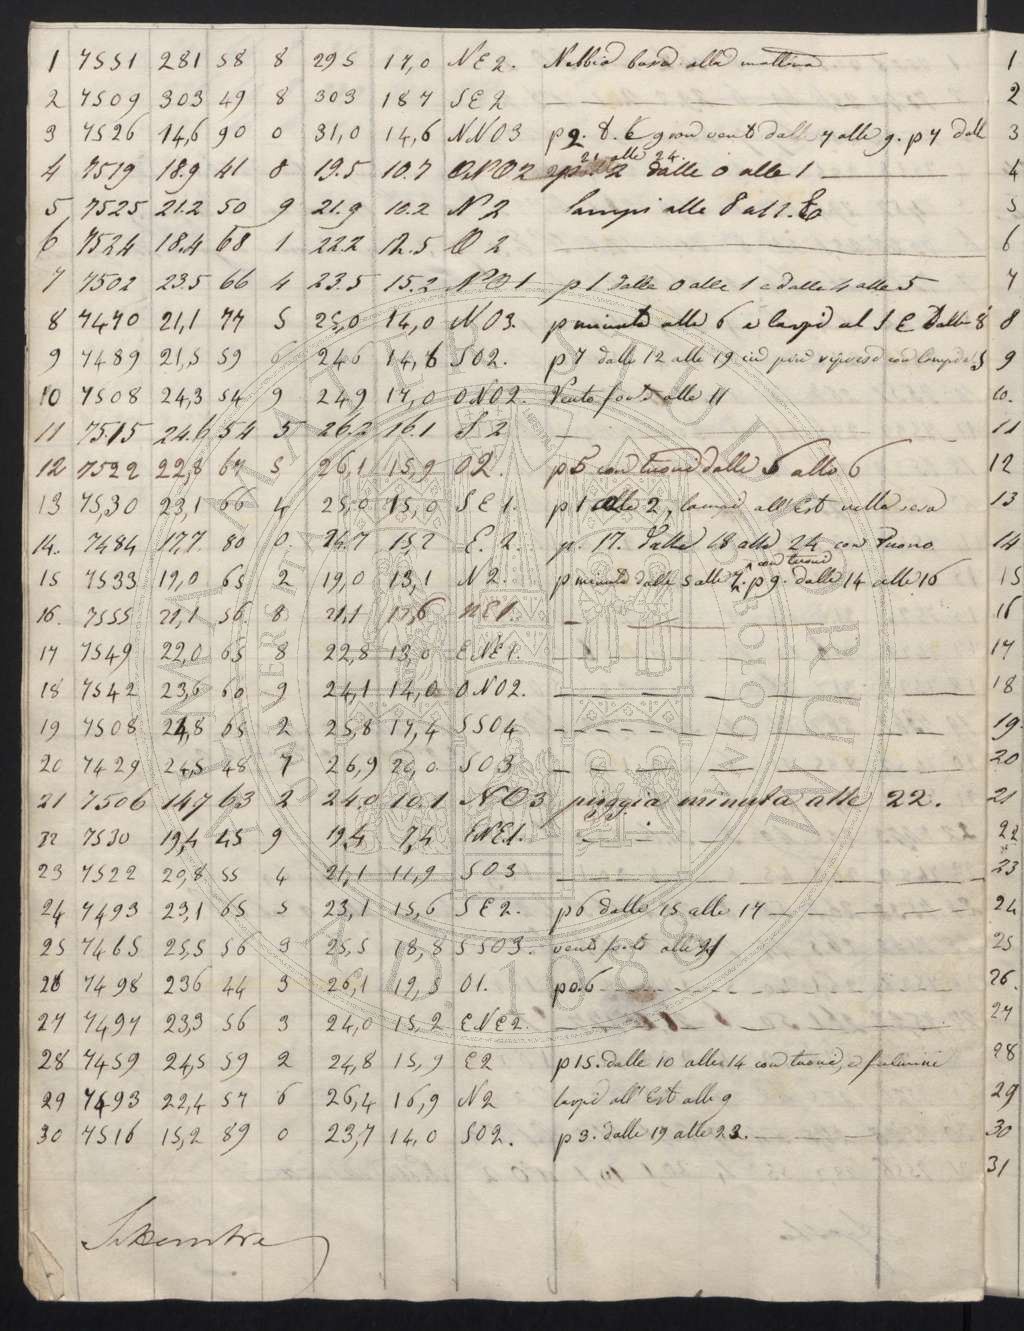 1 7551 281 58 8 295 17,0 NE2. Nebbia bassa alla mattina
2 7509 303 49 8 303 187 SE2
3 7526 14,6 90 0 31,0 14,6 NNO3 p 9. t. E gran vento dalle 7 alle 9. p 7 dalle
21 alle 24.
4 7519 18.9 41 8 19.5 10.7 ONO2 2 dalle 0 alle 1
5 7525 21.2 50 9 21.9 10.2 N2 lampi alle 8 all'E
6 7524 18.4 68 1 22.2 12.5 O2
7 7502 23.5 66 4 23.5 15.2 NO1 p 1 dalle 0 alle 1 e dalle 4 alle 5
8 7470 21,1 77 5 25,0 14,0 NO3. p minuta alle 6 e lampi al SE dalle 8
9 7489 21,5 59 6 246 14,6 SO2. p 7 dalle 12 alle 19 con lampi a S
10 7508 24,3 54 9 249 17,0 ONO2. Vento forte alle 11
11 7515 24.6 54 5 26.2 16.1 S2
12 7522 22,8 67 5 26,1 15,9 O2. p 5 con tuoni dalle 5 alle 6
13 7530 23,1 66 4 25,0 15,0 SE1. p 1 alle 2, lampi all'Est nella sera
14. 7484 17,7. 80 0. 24.7 15,2 E. 2. p. 17. dalle 18 alle 24 con tuono
con tuoni
15 7533 19,0 65 2 19,0 13,1 N2. p minuta dalle 5 alle 7. p 9. dalle 14 alle 16
16. 7555 21,1 56 8 21,1 13,6 NE1.
17 7549 22,0 65 8 22,8 13,0 ENE1.
18 7542 23,6 60 9 24,1 14,0 ONO2.
19 7508 24,8 65 2 25,8 17,4 SSO4
20 7429 24,5 48 7 26,9 20,0 SO3
21 7506 14,7 63 2 24,0 10.1 NO3 pioggia minuta alle 22.
22 7530 19,4 45 9 19,4 7,4 ENE1.
23 7522 20,8 55 4 21,1 11,9 SO3
24 7493 23,1 65 5 23,1 15,6 SE2. p 6 dalle 15 alle 17
25 7465 25,5 56 3 25,5 18,8 SSO3. vento forte alle 21
26 7498 236 44 3 26,1 19,5 O1. p 0.6
27 7497 23,3 56 3 24,0 15,2 ENE2.
28 7459 24,5 59 2 24,8 15,9 E2 p 15. dalle 10 alle 14 con tuoni, e fulmini
29 7493 22,4 57 6 26,4 16,9 N2 lampi all'Est alle 9
30 7516 15,2 89 0 23,7 14,0 SO2. p 3. dalle 19 alle 23.
Settembre
1
2
3
4
5
6
7
8
9
10.
11
12
13
14
15
16
17
18
19
20
21
22
23
24
25
26.
27
28
29
30
31
ALMA MATER STUDIORUM
A.D. 1088